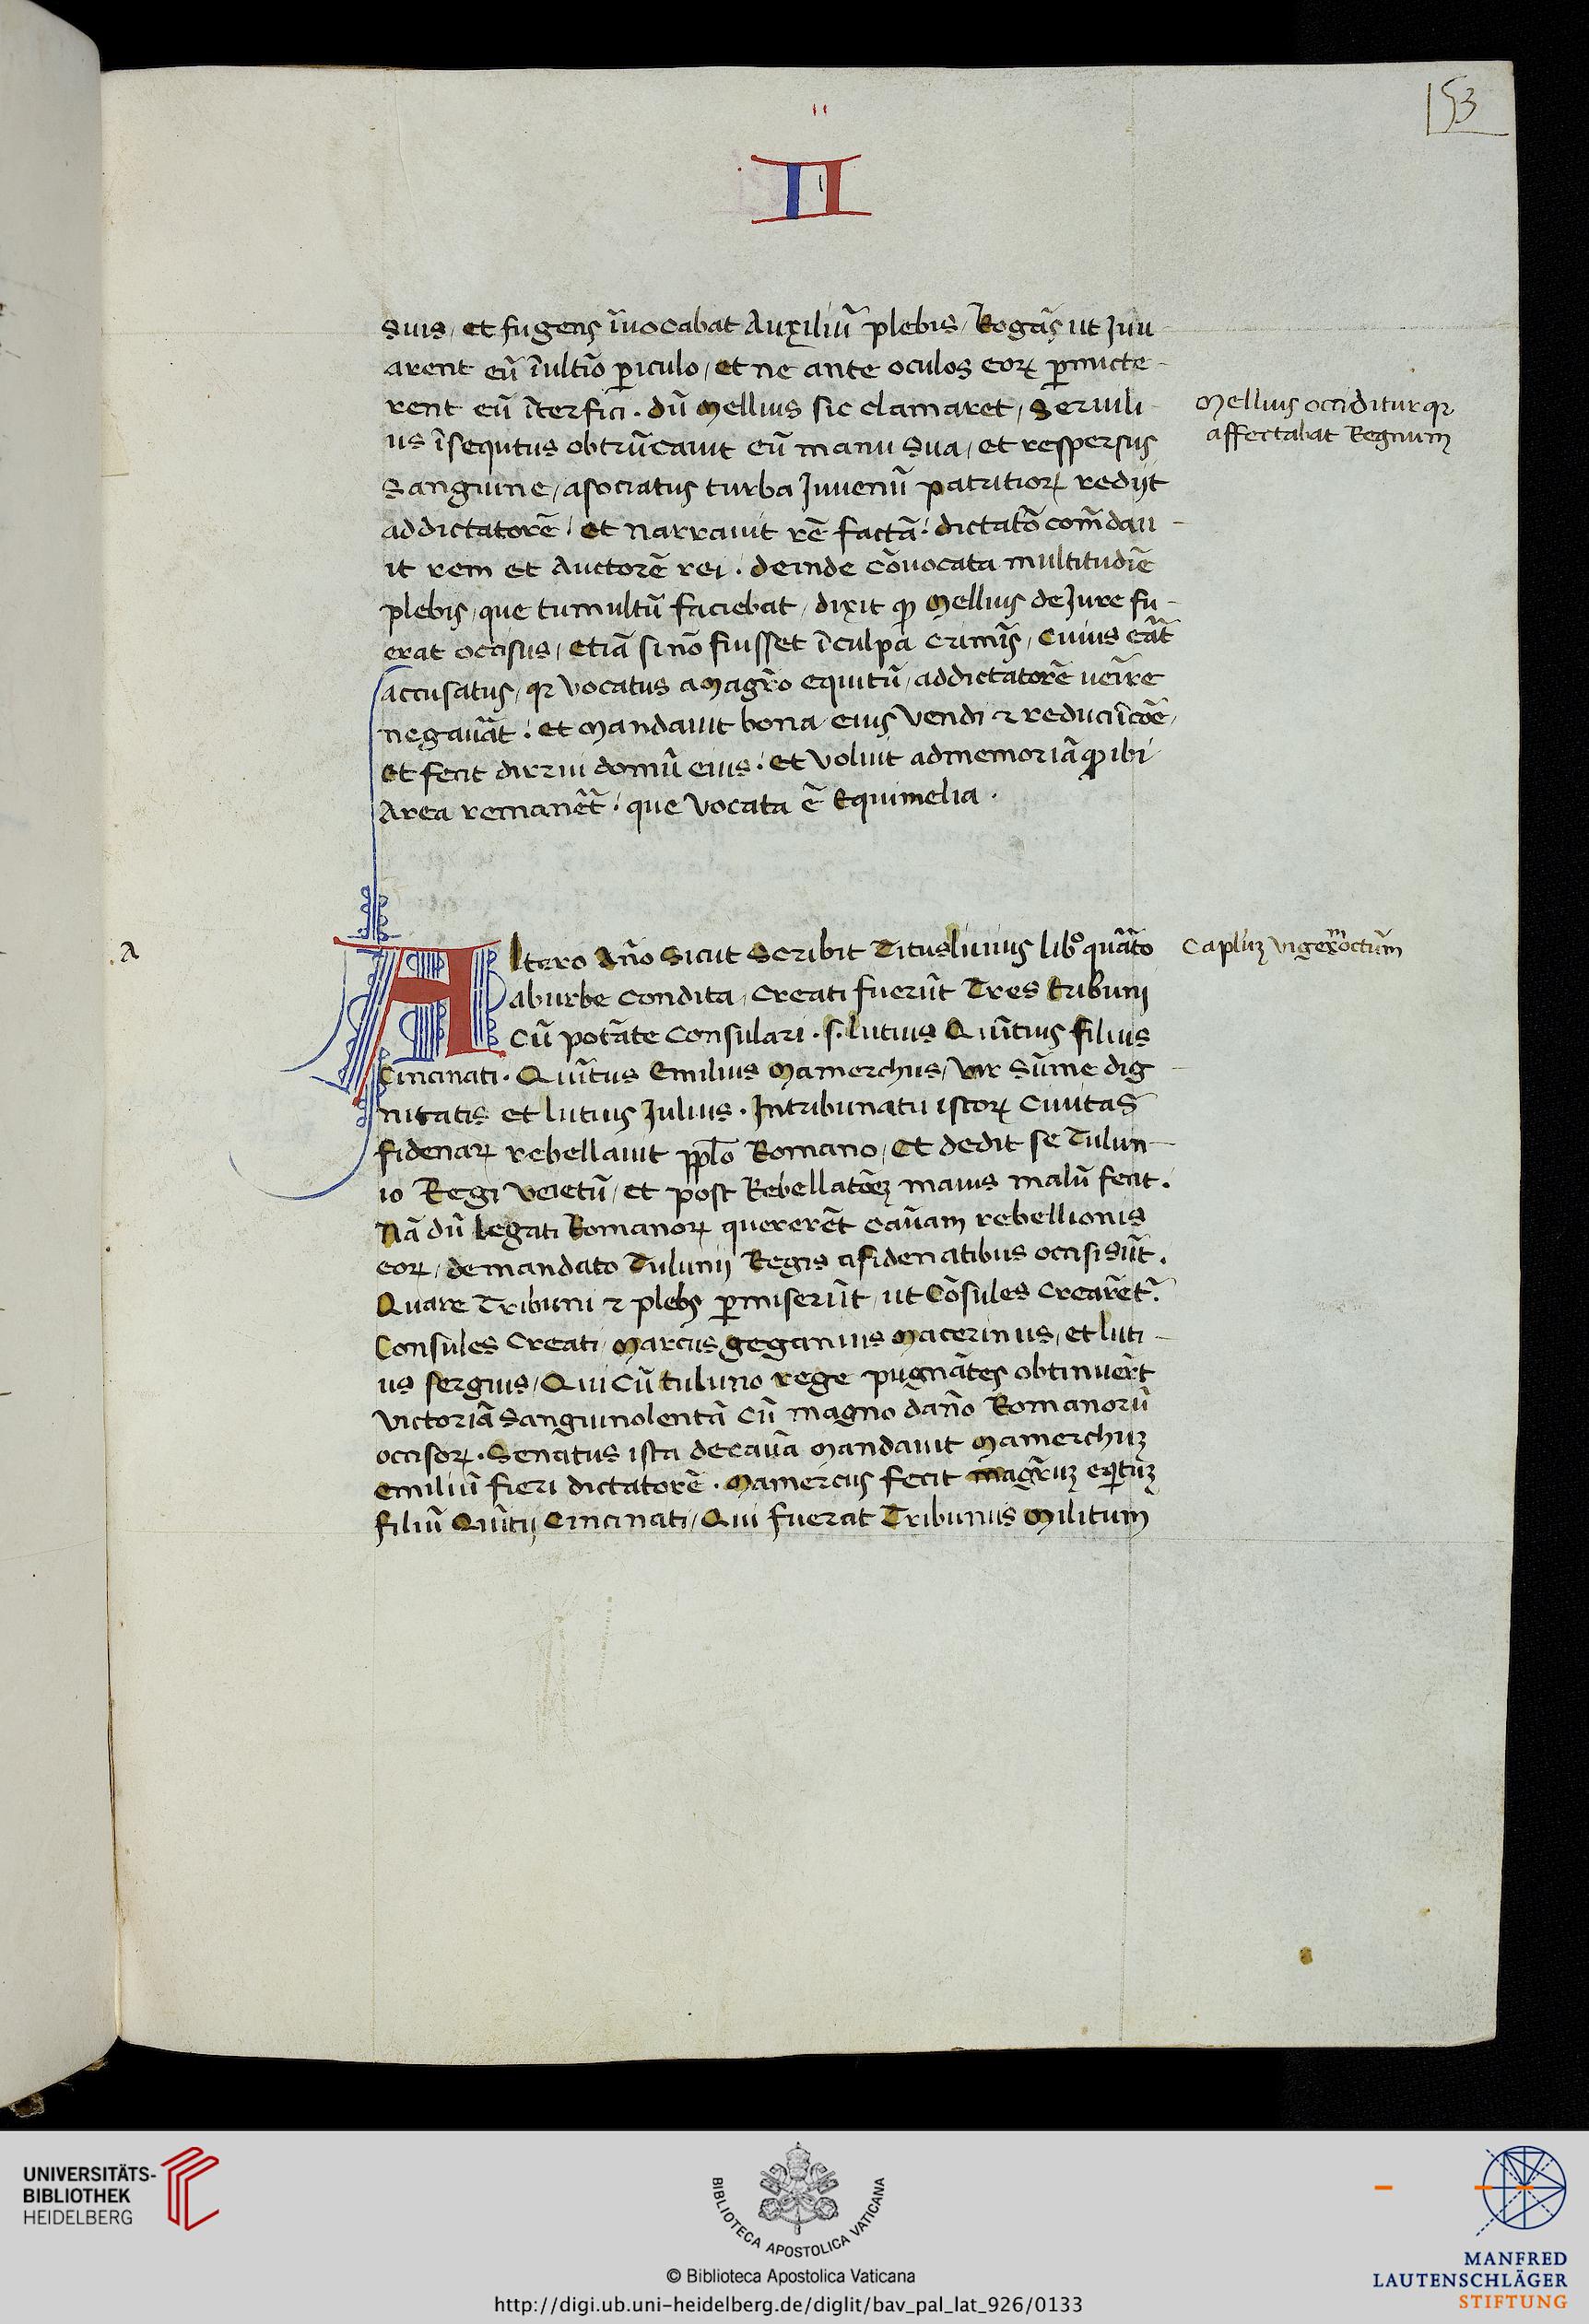 53
II
suis / et fugens īuocabat Auxiliū plebis / Rogās ut Iuu-
arent eū ī ultīo piculo / et ne ante oculos eoꝝ pmicte-
rent eū īterfici . dū Mellius sic clamaret / Seruili-
us īsequtus obtrūcauit eū manu sua / et respersus
Sanguine / asociatus turba Iuuenū patritioꝝ redijt
ad dictatorē / et narrauit rē factā . dictatō com̄dau-
it rem et Auctorē rei . deinde cōuocata multitudīe
plebis / que tumultū faciebat / dixit ꝙ Mellius de Iure fu-
erat occisus / etiā si nō fuisset ī culpa crimīs / cuius erāt
accusatus / qꝛ vocatus a Magr̄o equitū / ad dictatorē ueīre
negauāt . et Mandauit bona eius vendi ⁊ reduci ī cōe /
et fecit dirrui domū eius . et voluit ad memoriā ꝙ ibi
Area remanēt . que vocata ē Equimelia .
Mellius occiditur qꝛ
affectabat Regnum
a
Altero An̄o Sicut Scribit Titus liuius libº quārto
ab urbe condita / creati fuerūt Tres tribuni
cū potāte consulari . s . lutius Quītius filius
Cincinati . Quītus Emilius Mamerchus / vir Sūme dig-
nitatis et lutius Iulius . In tribunatu istoꝝ Ciuitas
fidenaꝝ rebellauit pplō Romano / et dedit se Tulun-
io Regi veietū / et post Rebellatōeꝫ maius malū fecit .
Nā dū legati Romanoꝝ quererēt cāusam rebellionis
eoꝝ / de mandato Tulunij Regis a fidenatibus occisi sūt .
Quare Tribuni ⁊ plebs pmiserūt / ut Cōsules crearēt .
Consules Creati / Marcus geganius Macerinus / et luti-
us sergius / Qui cū tuluno rege pugnātes obtinuer̄t
victoriā Sanguinolentā cū magno dan̄o Romanorū
occisoꝝ . Senatus ista de cauā Mandauit Mamerchuꝫ
emiliū fieri dictatorē . Mamercus fecit magr̄uꝫ eqtuꝫ
filiū Quītij Cincinati / Qui fuerat Tribunus Militum
Caplūꝫ vigesͫoctūm
UNIVERSITÄTS-
BIBLIOTHEK
HEIDELBERG
BIBLIOTECA APOSTOLICA VATICANA
© Biblioteca Apostolica Vaticana
http://digi.ub.uni-heidelberg.de/diglit/bav_pal_lat_926/0133
MANFRED
LAUTENSCHLÄGER
STIFTUNG